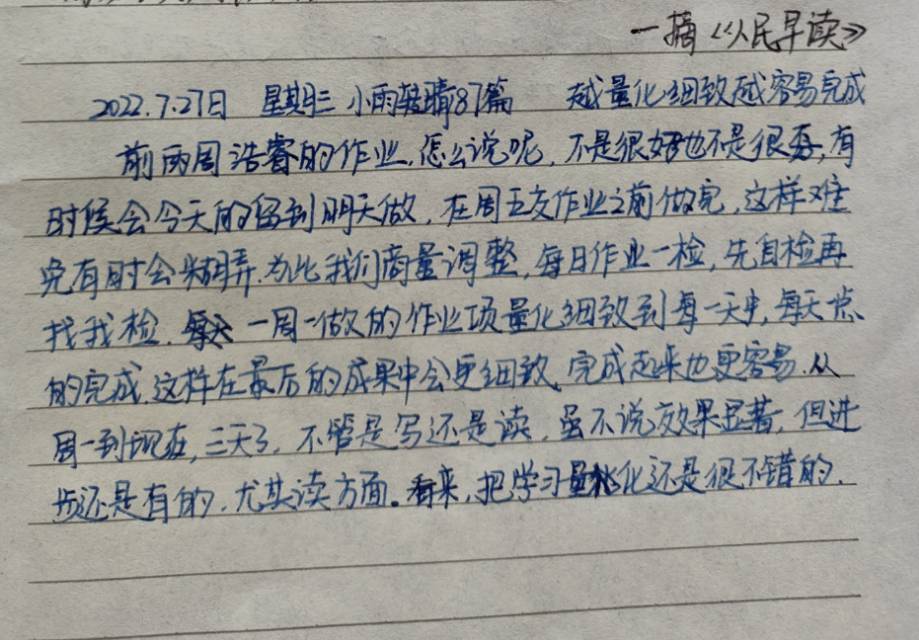 一摘《人民早读》
2022.7.27日 星期三 小雨转晴87篇 越量化细致越容易完成
前两周浩睿的作业,怎么说呢,不是很好也不是很,有
时候会今天的留到明天做,在周五交作业之前做完,这样难
免有时会糊弄.为此我们商量调整,每日作业一检,先自检再
找我检.一周一做的作业项量化细致到每一天中,每天点
的完成,这样在最后的成果中会更细致,完成起来也更容易.从
周一到现在,三天了,不管是写还是读,虽不说效果显著,但进
步还是有的,尤其读方面。看来,把学习量化还是很不错的.